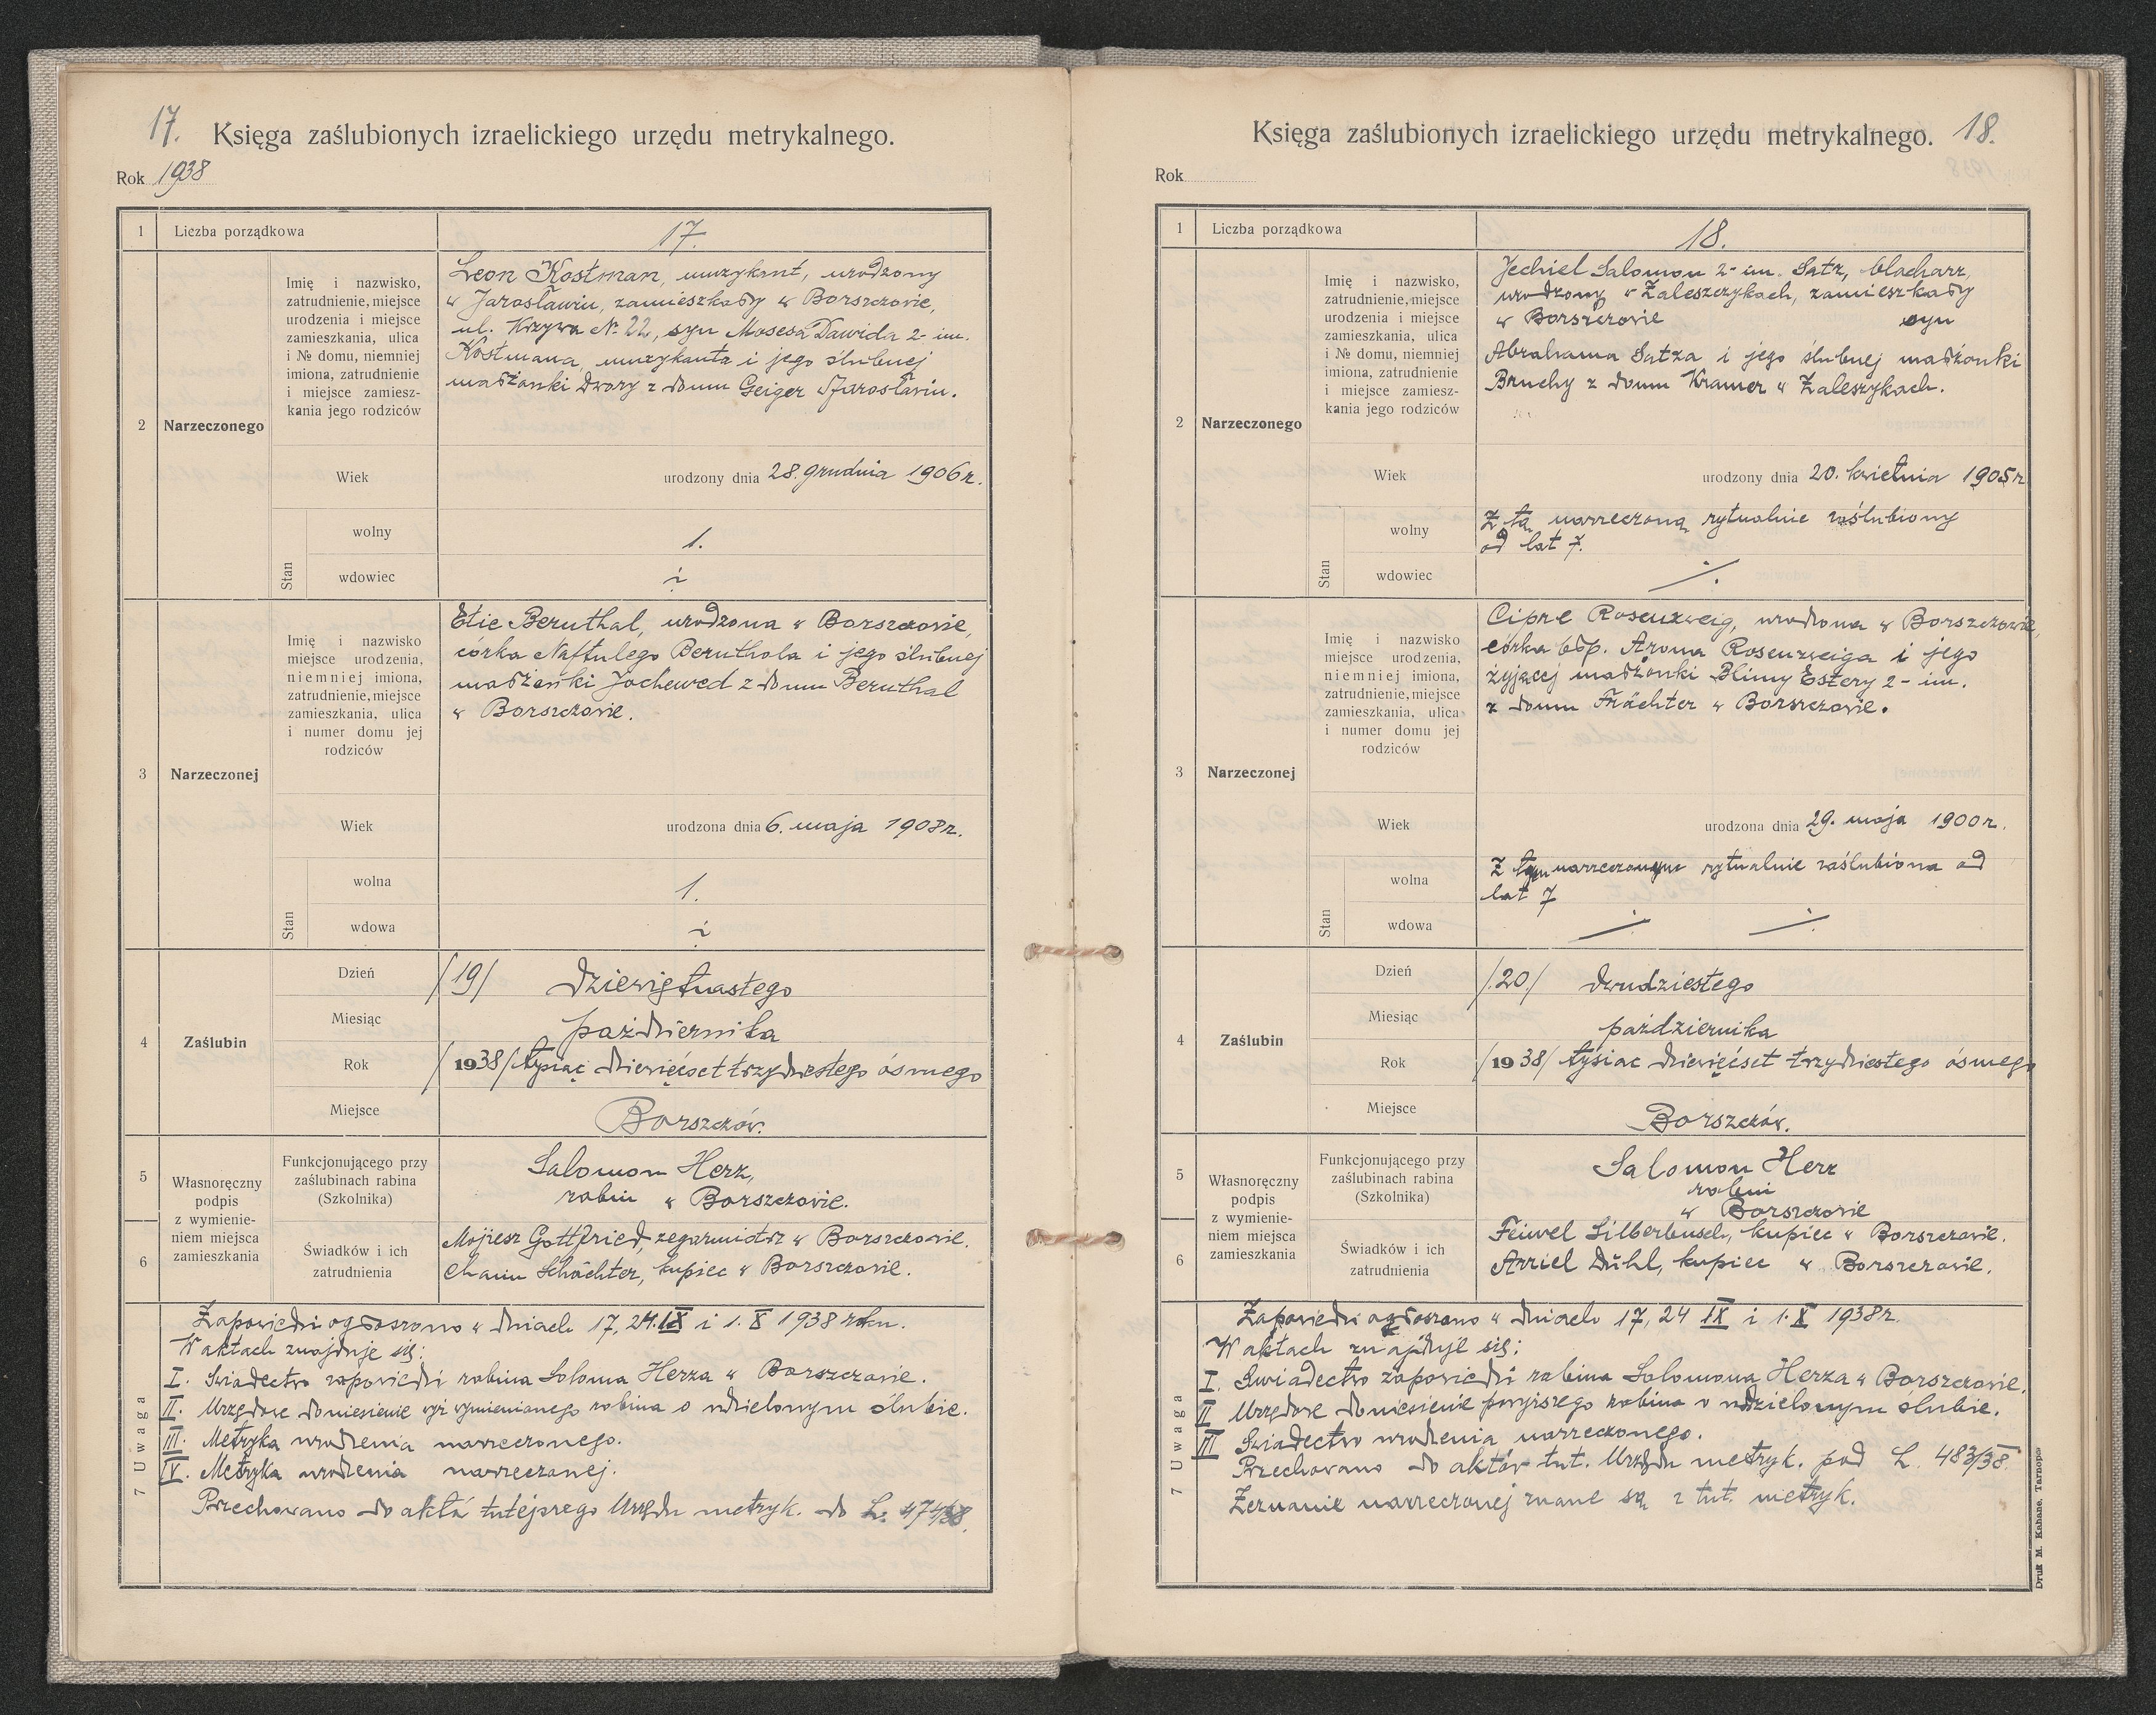 17.
Księga zaślubionych izraelickiego urzędu metrykalnego.
Rok 1938
1 Liczba porządkowa 17.
2 Narzeczonego
Imię i nazwisko,
zatrudnienie, miejsce
urodzenia i miejsce
zamieszkania, ulica
i № domu, niemniej
imiona, zatrudnienie
i miejsce zamiesz-
kania jego rodziców
Leon Kostman, muzykant, urodzony
w Jarosławiu, zamieszkały w Borszczowie,
ul. Krzywa № 22, syn Mosesa Dawida 2-im.
Kostmana, muzykanta i jego ślubnej
małżonki Dwory z domu Geiger w Jarosławiu.
Wiek urodzony dnia 28. grudnia 1906 r.
Stan
wolny 1.
wdowiec
3 Narzeczonej
Imię i nazwisko
miejsce urodzenia,
niemniej imiona,
zatrudnienie, miejsce
zamieszkania, ulica
i numer domu jej
rodziców
Etie Bernthal, urodzona w Borszczowie,
córka Naftulego Bernthola i jego ślubnej
małżonki Jochewed z domu Bernthal
w Borszczowie.
Wiek urodzona dnia 6. maja 1908 r.
Stan
wolna 1.
wdowa
4 Zaślubin
Dzień /19/ dziewiętnastego
Miesiąc października
Rok /1938/ tysiąc dziewięćset trzydziestego ósmego
Miejsce Borszczów.
5
6
Własnoręczny
podpis
z wymienie-
niem miejsca
zamieszkania
Funkcjonującego przy
zaślubinach rabina
(Szkolnika)
Salomon Herz,
rabin w Borszczowie.
Świadków i ich
zatrudnienia
Mojżesz Gottfried, zegarmistrz w Borszczowie.
Chaim Schächter, kupiec w Borszczowie.
7 Uwaga
Zapowiedzi ogłoszono w dniach 17, 24.IX i 1.X 1938 roku.
W aktach znajduje się:
I. Świadectwo zapowiedzi rabina Saloma Herza w Borszczowie.
II. Urzędowe doniesienie wyż wymienianego rabina o udzielonym ślubie.
III. Metryka urodzenia narzeczonego.
IV. Metryka urodzenia narzeczonej.
Przechowano do aktů tutejszego Urzędu metryk. do L.
Księga zaślubionych izraelickiego urzędu metrykalnego.
18.
Rok
1 Liczba porządkowa 18.
2 Narzeczonego
Imię i nazwisko,
zatrudnienie, miejsce
urodzenia i miejsce
zamieszkania, ulica
i № domu, niemniej
imiona, zatrudnienie
i miejsce zamiesz-
kania jego rodziców
Jechiel Salomon 2-im. Satz, blacharz,
urodzony w Zaleszczykach, zamieszkały
w Borszczowie syn
Abrahama Satza i jego ślubnej małżonki
Bruchy z domu Kramer w Zaleszykach.
Wiek urodzony dnia 20. kwietnia 1905 r
Stan
wolny
Z tą narzeczoną rytualnie zaślubiony
od lat 7.
wdowiec
3 Narzeczonej
Imię i nazwisko
miejsce urodzenia,
niemniej imiona,
zatrudnienie, miejsce
zamieszkania, ulica
i numer domu jej
rodziców
Cipre Rosenzweig, urodzona w Borszczowie,
córka błp. Arona Rosenzweiga i jego
żyjącej małżonki Blimy Estery 2-im.
z domu Frächter w Borszczowie.
Wiek urodzona dnia 29. maja 1900 r.
Stan
wolna
Z tym narzeczonym rytualnie zaślubiona od
lat 7
wdowa
4 Zaślubin
Dzień /20/ dwudziestego
Miesiąc października
Rok /1938/ tysiąc dziewięćset trzydziestego ósmego
Miejsce Borszczów.
5
6
Własnoręczny
podpis
z wymienie-
niem miejsca
zamieszkania
Funkcjonującego przy
zaślubinach rabina
(Szkolnika)
Salomon Herz
rabin
w Borszczowie
Świadków i ich
zatrudnienia
Feiwel Silberbusch, kupiec w Borszczowie.
Azriel Dühl, kupiec w Borszczowie.
7 Uwaga
Zapowiedzi ogłoszono w dniach 17, 24 IX i 1.X 1938 r.
W aktach znajduje się:
I. Świadectwo zapowiedzi rabina Salomona Herza w Borszczowie.
II Urzędowe doniesienie powyższego rabina o udzielonym ślubie.
III Świadectwo urodzenia narzeczonego.
Przechowano do aktów tut. Urzędu metryk. pod L. 483/38.
Zeznanie narzeczonej znane są z tut. metryk.
Druk M. Kahane, Tarnopol